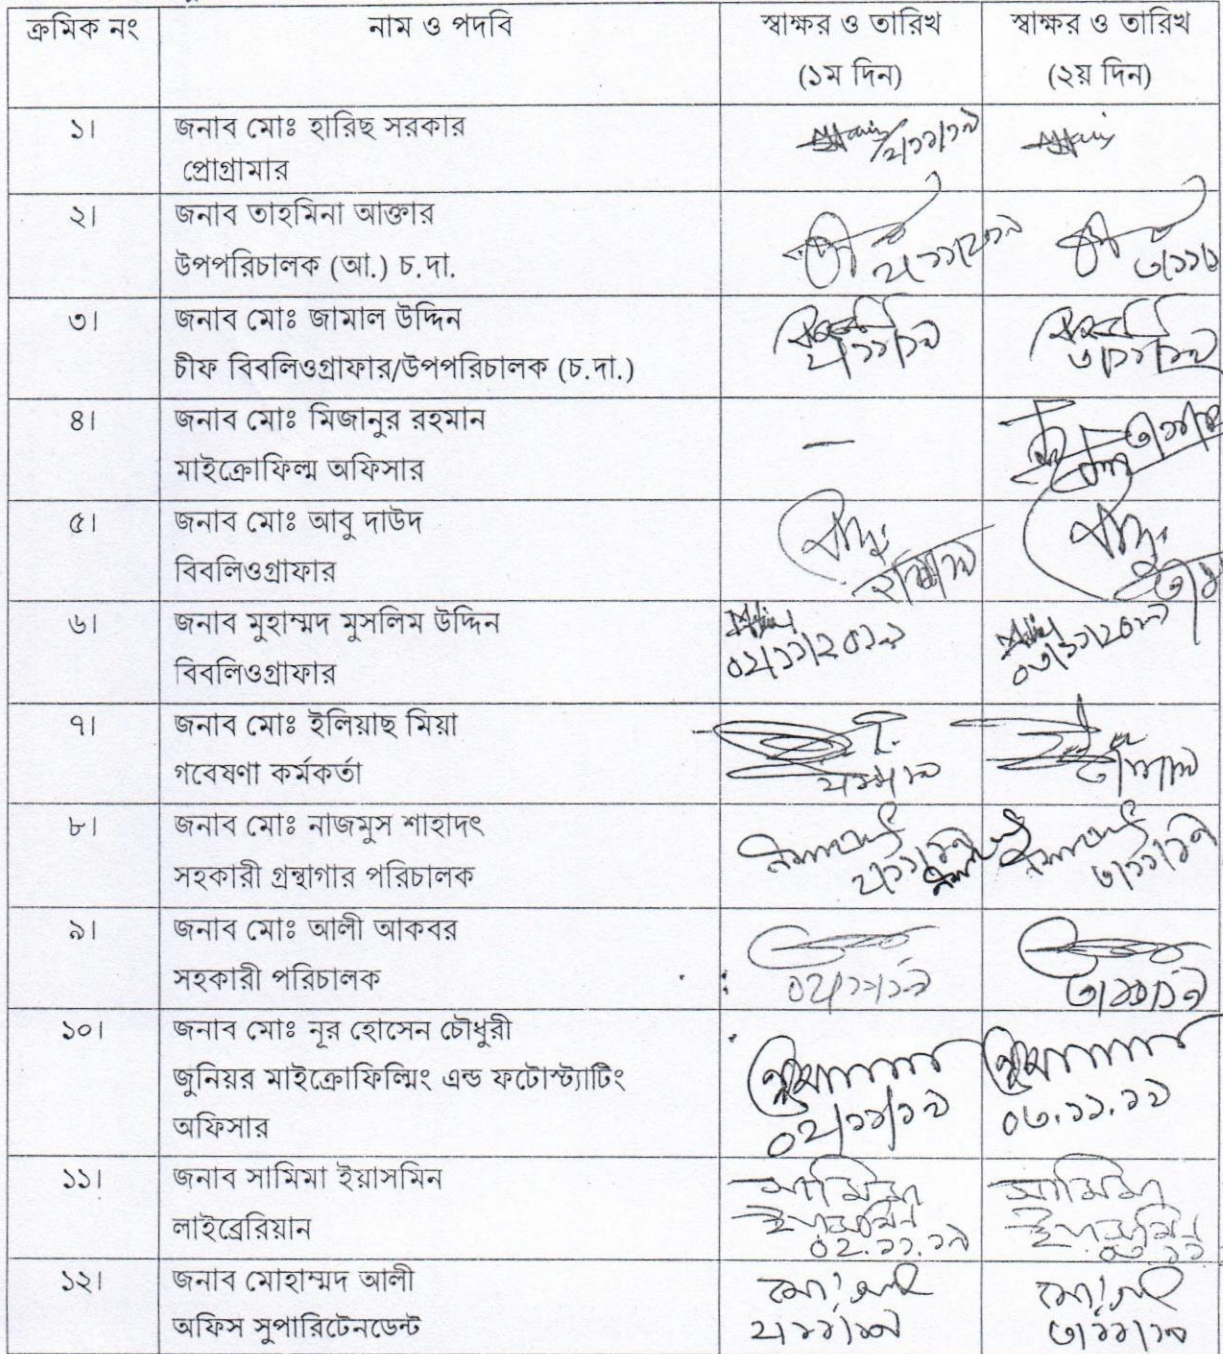 ক্রমিক নং নাম ও পদবি স্বাক্ষর ও তারিখ স্বাক্ষর ও তারিখ
(১ম দিন) (২য় দিন)
১। জনাব মোঃ হারিছ সরকার
প্রোগ্রামার ২/১১/১৯
২। জনাব তাহমিনা আক্তার
উপপরিচালক (আ.) চ.দা. ২/১১/২০১৯
৩। জনাব মোঃ জামাল উদ্দিন
চীফ বিবলিওগ্রাফার/উপপরিচালক (চ.দা.) ২/১১/১৯ ৩/১১/১৯
৪। জনাব মোঃ মিজানুর রহমান —
মাইক্রোফিল্ম অফিসার
৫। জনাব মোঃ আবু দাউদ
বিবলিওগ্রাফার
৬। জনাব মুহাম্মদ মুসলিম উদ্দিন
বিবলিওগ্রাফার ০২/১১/২০১৯ ০৩/১১/২০১৯
৭। জনাব মোঃ ইলিয়াছ মিয়া
গবেষণা কর্মকর্তা ২/১১/১৯
৮। জনাব মোঃ নাজমুস শাহাদৎ
সহকারী গ্রন্থাগার পরিচালক ২/১১/১৯ ৩/১১/১৯
৯। জনাব মোঃ আলী আকবর
সহকারী পরিচালক ০২/১১/১৯ ৩/১১/১৯
১০। জনাব মোঃ নূর হোসেন চৌধুরী
জুনিয়র মাইক্রোফিল্মিং এন্ড ফটোস্ট্যাটিং
অফিসার ০২/১১/১৯ ০৩.১১.১৯
১১। জনাব সামিমা ইয়াসমিন সামিমা সামিমা
লাইব্রেরিয়ান ইয়াসমিন ইয়াসমিন
০২.১১.১৯ ০৩.১১
১২। জনাব মোহাম্মদ আলী
অফিস সুপারিটেনডেন্ট ২/১১/১৯ ৩/১১/১৯